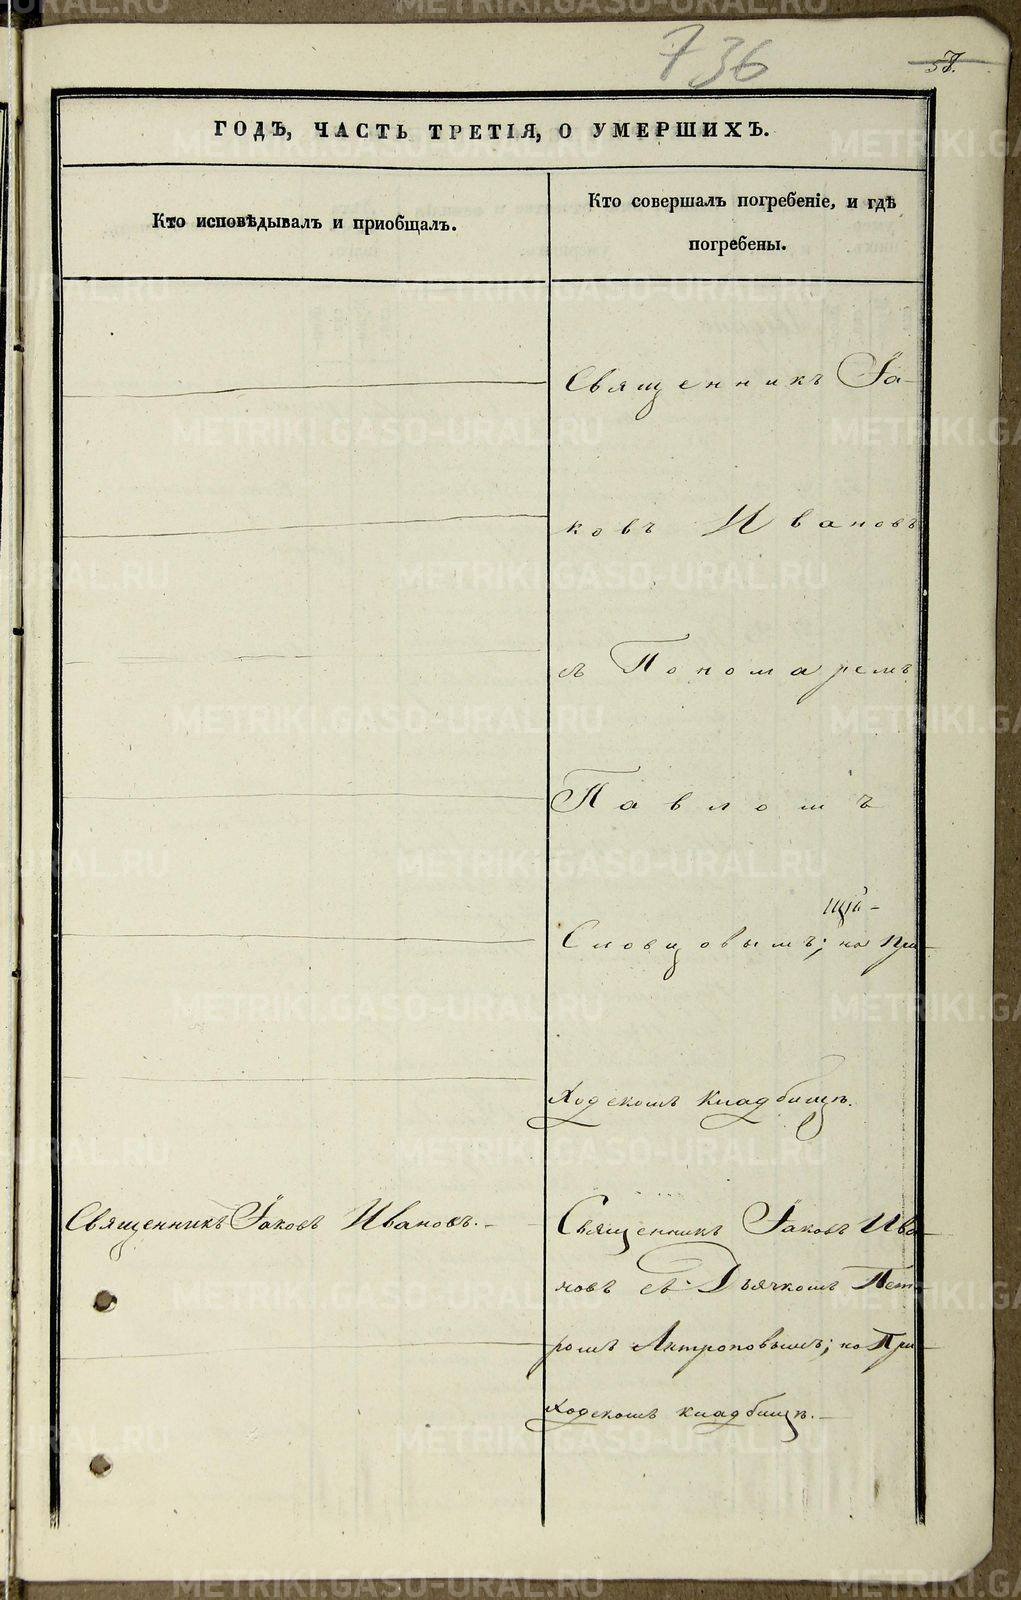 736
57.
ГОДЪ, ЧАСТЬ ТРЕТІЯ, О УМЕРШИХЪ.
Кто исповѣдывалъ и пріобщалъ.
Кто совершалъ погребеніе, и гдѣ
погребены.
Священникъ Іа-
ковъ Ивановъ
съ Пономаремъ
Павломъ
Словцовымъ; на При-
Ходскомъ кладбищѣ.
Священникъ Іаковъ Ивановъ. -
Священникъ Іаковъ Ива-
новъ съ Дьячкомъ Пет-
ромъ Антроповымъ; на При-
Ходскомъ кладбищѣ. -
METRIKI.GASO-URAL.RU